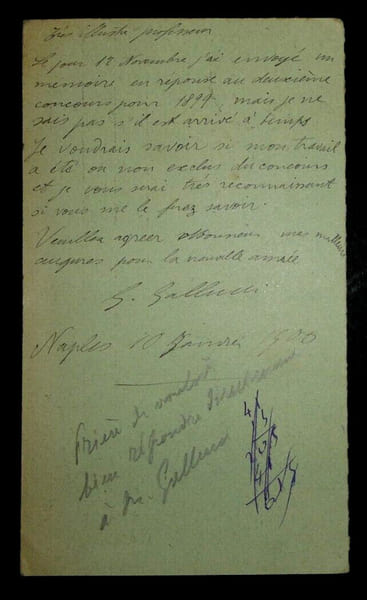 Très illustre professeur
Le jour 12 Novembre j'ai envoyé un
memoire en reponse au deuxième
concours pour 1899, mais je ne
sais pas s'il est arrivé à temps
Je voudrais savoir si mon travail
a été ou non exclus du concours
et je vous serai très reconnaissant
si vous me le ferez savoir.
Veuillez agreer Monsieur mes meilleurs
augures pour la nouvelle année
G. Gallucci
Naples 10 Janvier 1900
Prière de vouloir
bien répondre directement
à M. Gallucci